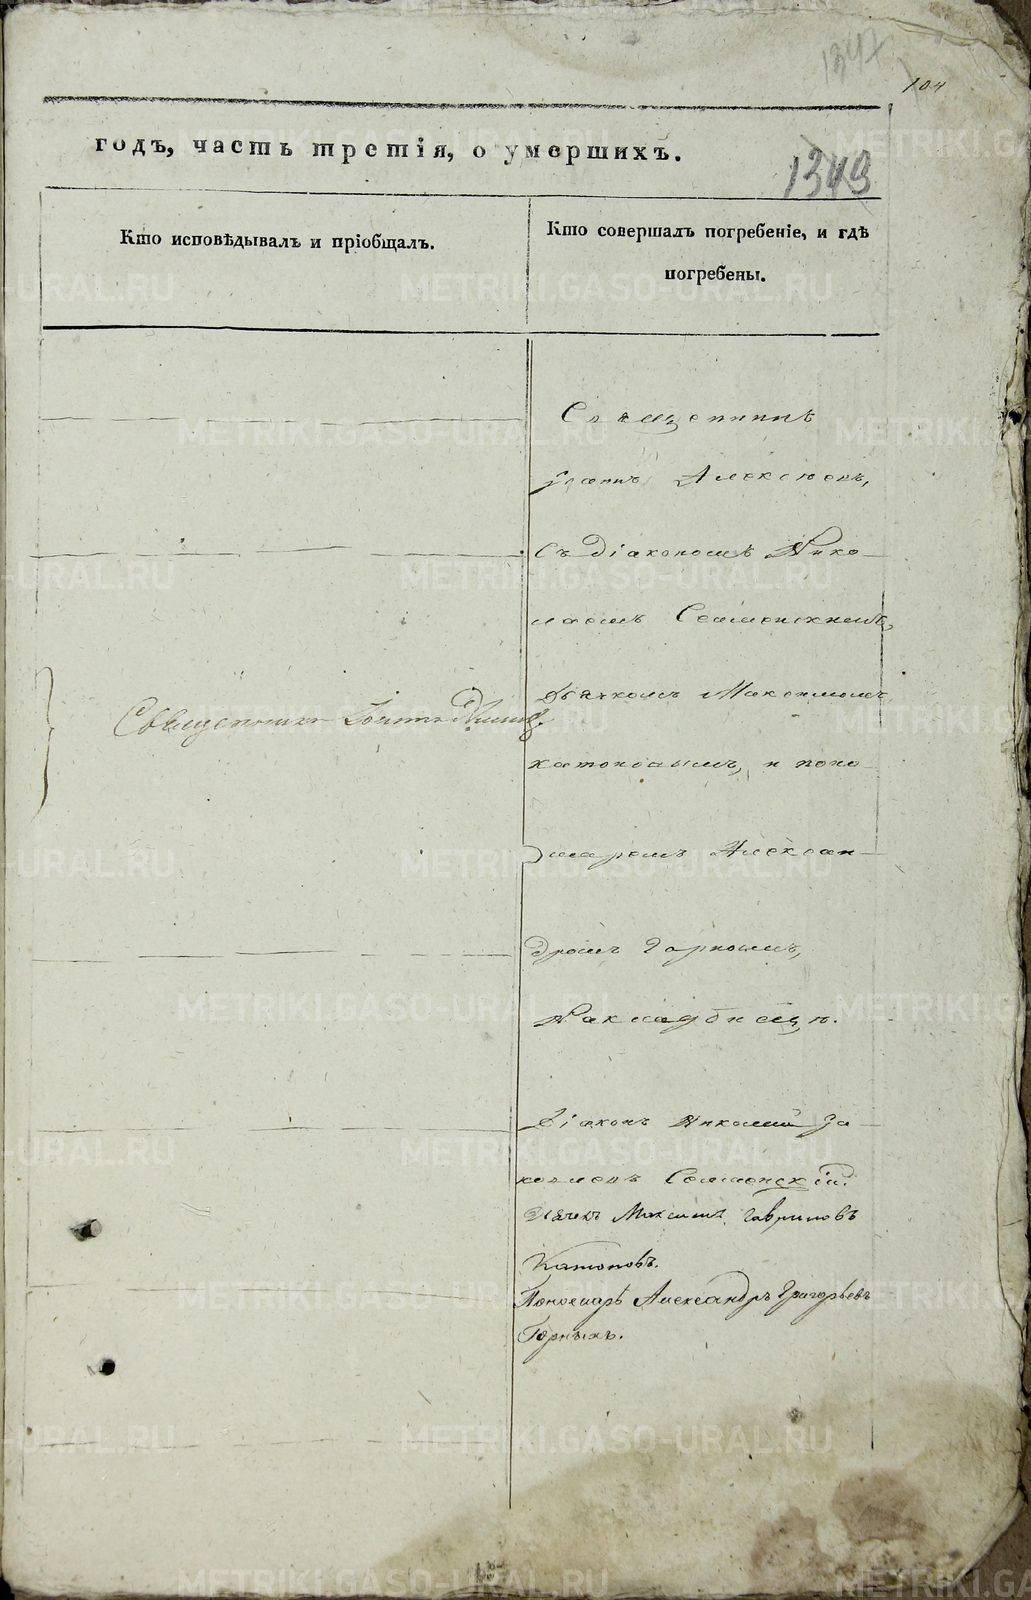 1347
104
годъ, часть третія, о умершихъ.
1349
Кто исповѣдывалъ и пріобщалъ.
Кто совершалъ погребеніе, и гдѣ
погребены.
Священникъ
Іоаннъ Алексѣевъ,
съ діакономъ Нико-
лаемъ Селменскимъ,
Священникъ
дьячкомъ Максимомъ
Катоновымъ, и поно-
маремъ Алексан-
дромъ Горнымъ,
На кладбищѣ.
Діаконъ Николай Я
ковлевъ Селменскій.
Дьячекъ Максимъ Гавриловъ
Катоновъ.
Пономарь Александръ Григорьевъ
Горныхъ.
METRIKI.GASO-URAL.RU